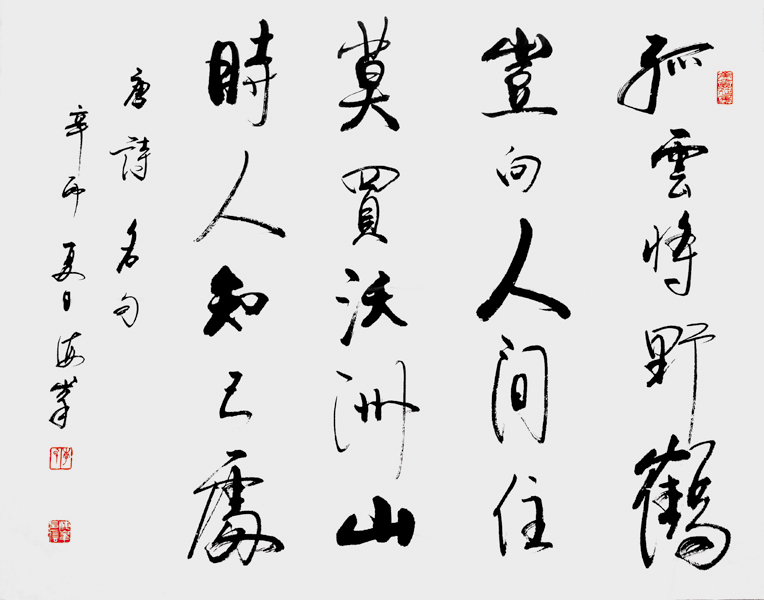 孤雲將野鶴
豈向人間住
莫買沃洲山
時人知已處
唐詩名句
辛卯夏日海峯